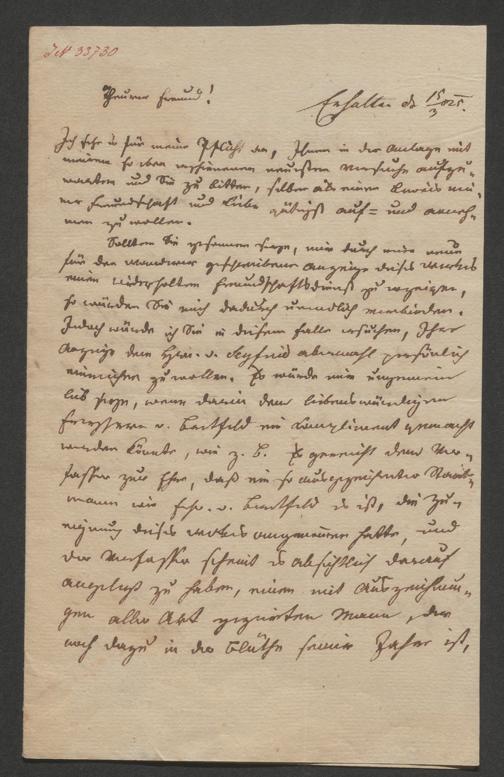 IN 33730
Theurer Freund!
Erhalten d 15/3 825.
Ich sehe es für meine Pflicht an, Ihnen in der Anlage mit
meinem so eben erschienenen neuesten Versuche aufzu-
warten und Sie zu bitten, selben als einen Beweis mei-
ner Freundschaft und Liebe gütigst auf= und anneh-
men zu wollen.
Sollten Sie gesonnen seyn, mir durch eine neue
für den Wanderer geschriebene Anzeige dieses Werkes
einen wiederholten Freundschaftsdienst zu erzeigen,
so würden Sie mich dadurch unendlich verbinden.
Jedoch würde ich Sie in diesem Falle ersuchen, Ihre
Anzeige dem Hrn. v. Seyfried abermahl persönlich
einreichen zu wollen. Es würde mir ungemein
lieb seyn, wenn darin dem liebenswürdigen
Freyherrn v. Bartfeld ein Compliment gemacht
werden könnte, wie z. B. Es gereicht dem Ver-
fasser zur Ehre, daß ein so ausgezeichneter Staats-
mann wie Frhr. v. Bartfeld es ist, die Zu-
eignung dieses Werkes angenommen hatte, und
der Verfasser scheint es absichtlich darauf
angelegt zu haben, einen mit Auszeichnun-
gen aller Art gezierten Mann, der
noch dazu in der Blüthe seiner Jahre ist,